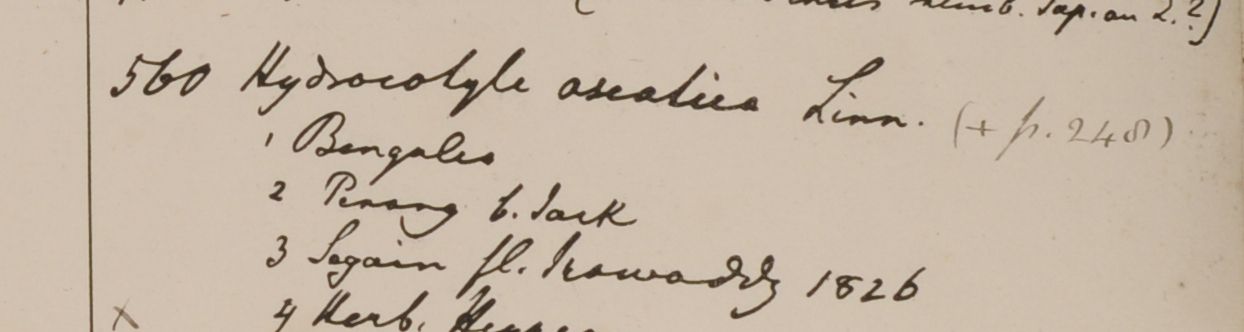 Jap. an 2.?)
560 Hydrocotyle aseatica Linn. (+ p. 248)
1 Bengalea
2 Penang G. Jack
3 Segain fl. Irawaddy 1826
4 Herb.